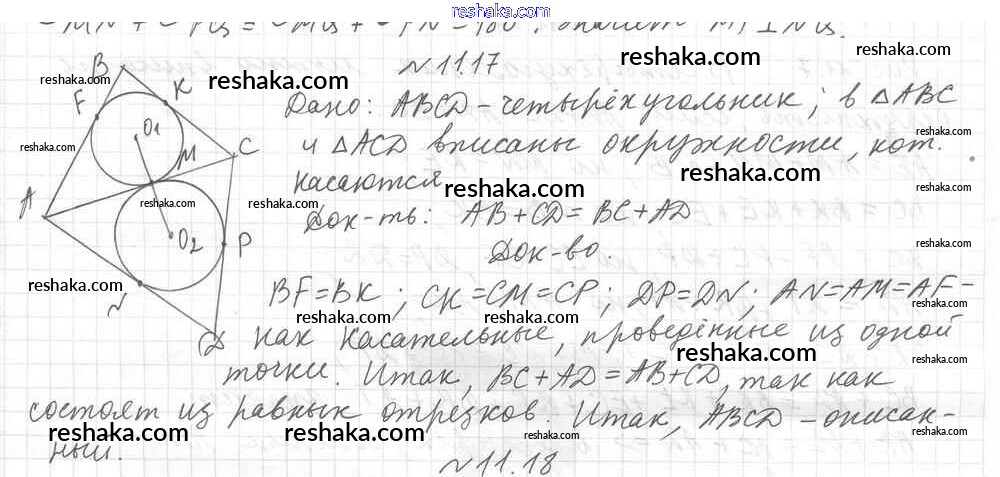 www.reshaka.com
∠MN + ∠PQ = ∠MQ + ∠PN = 180°, значит MP ⊥ NQ.
N 11.17
Дано: ABCD - четырёхугольник; в △ABC
и △ACD вписаны окружности, кот.
касаются.
Док-ть: AB + CD = BC + AD
Док-во.
BF = BK; CK = CM = CP; DP = DN; AN = AM = AF -
как касательные, проведённые из одной
точки. Итак, BC + AD = AB + CD, так как
состоят из равных отрезков. Итак, ABCD - описан-
ный.
N 11.18
B
F
K
O1
M
C
A
O2
P
N
D
reshaka.com
reshaka.com
reshaka.com
reshaka.com
reshaka.com
reshaka.com
reshaka.com
reshaka.com
reshaka.com
reshaka.com
reshaka.com
reshaka.com
reshaka.com
reshaka.com
reshaka.com
reshaka.com
reshaka.com
reshaka.com
reshaka.com
reshaka.com
reshaka.com
reshaka.com